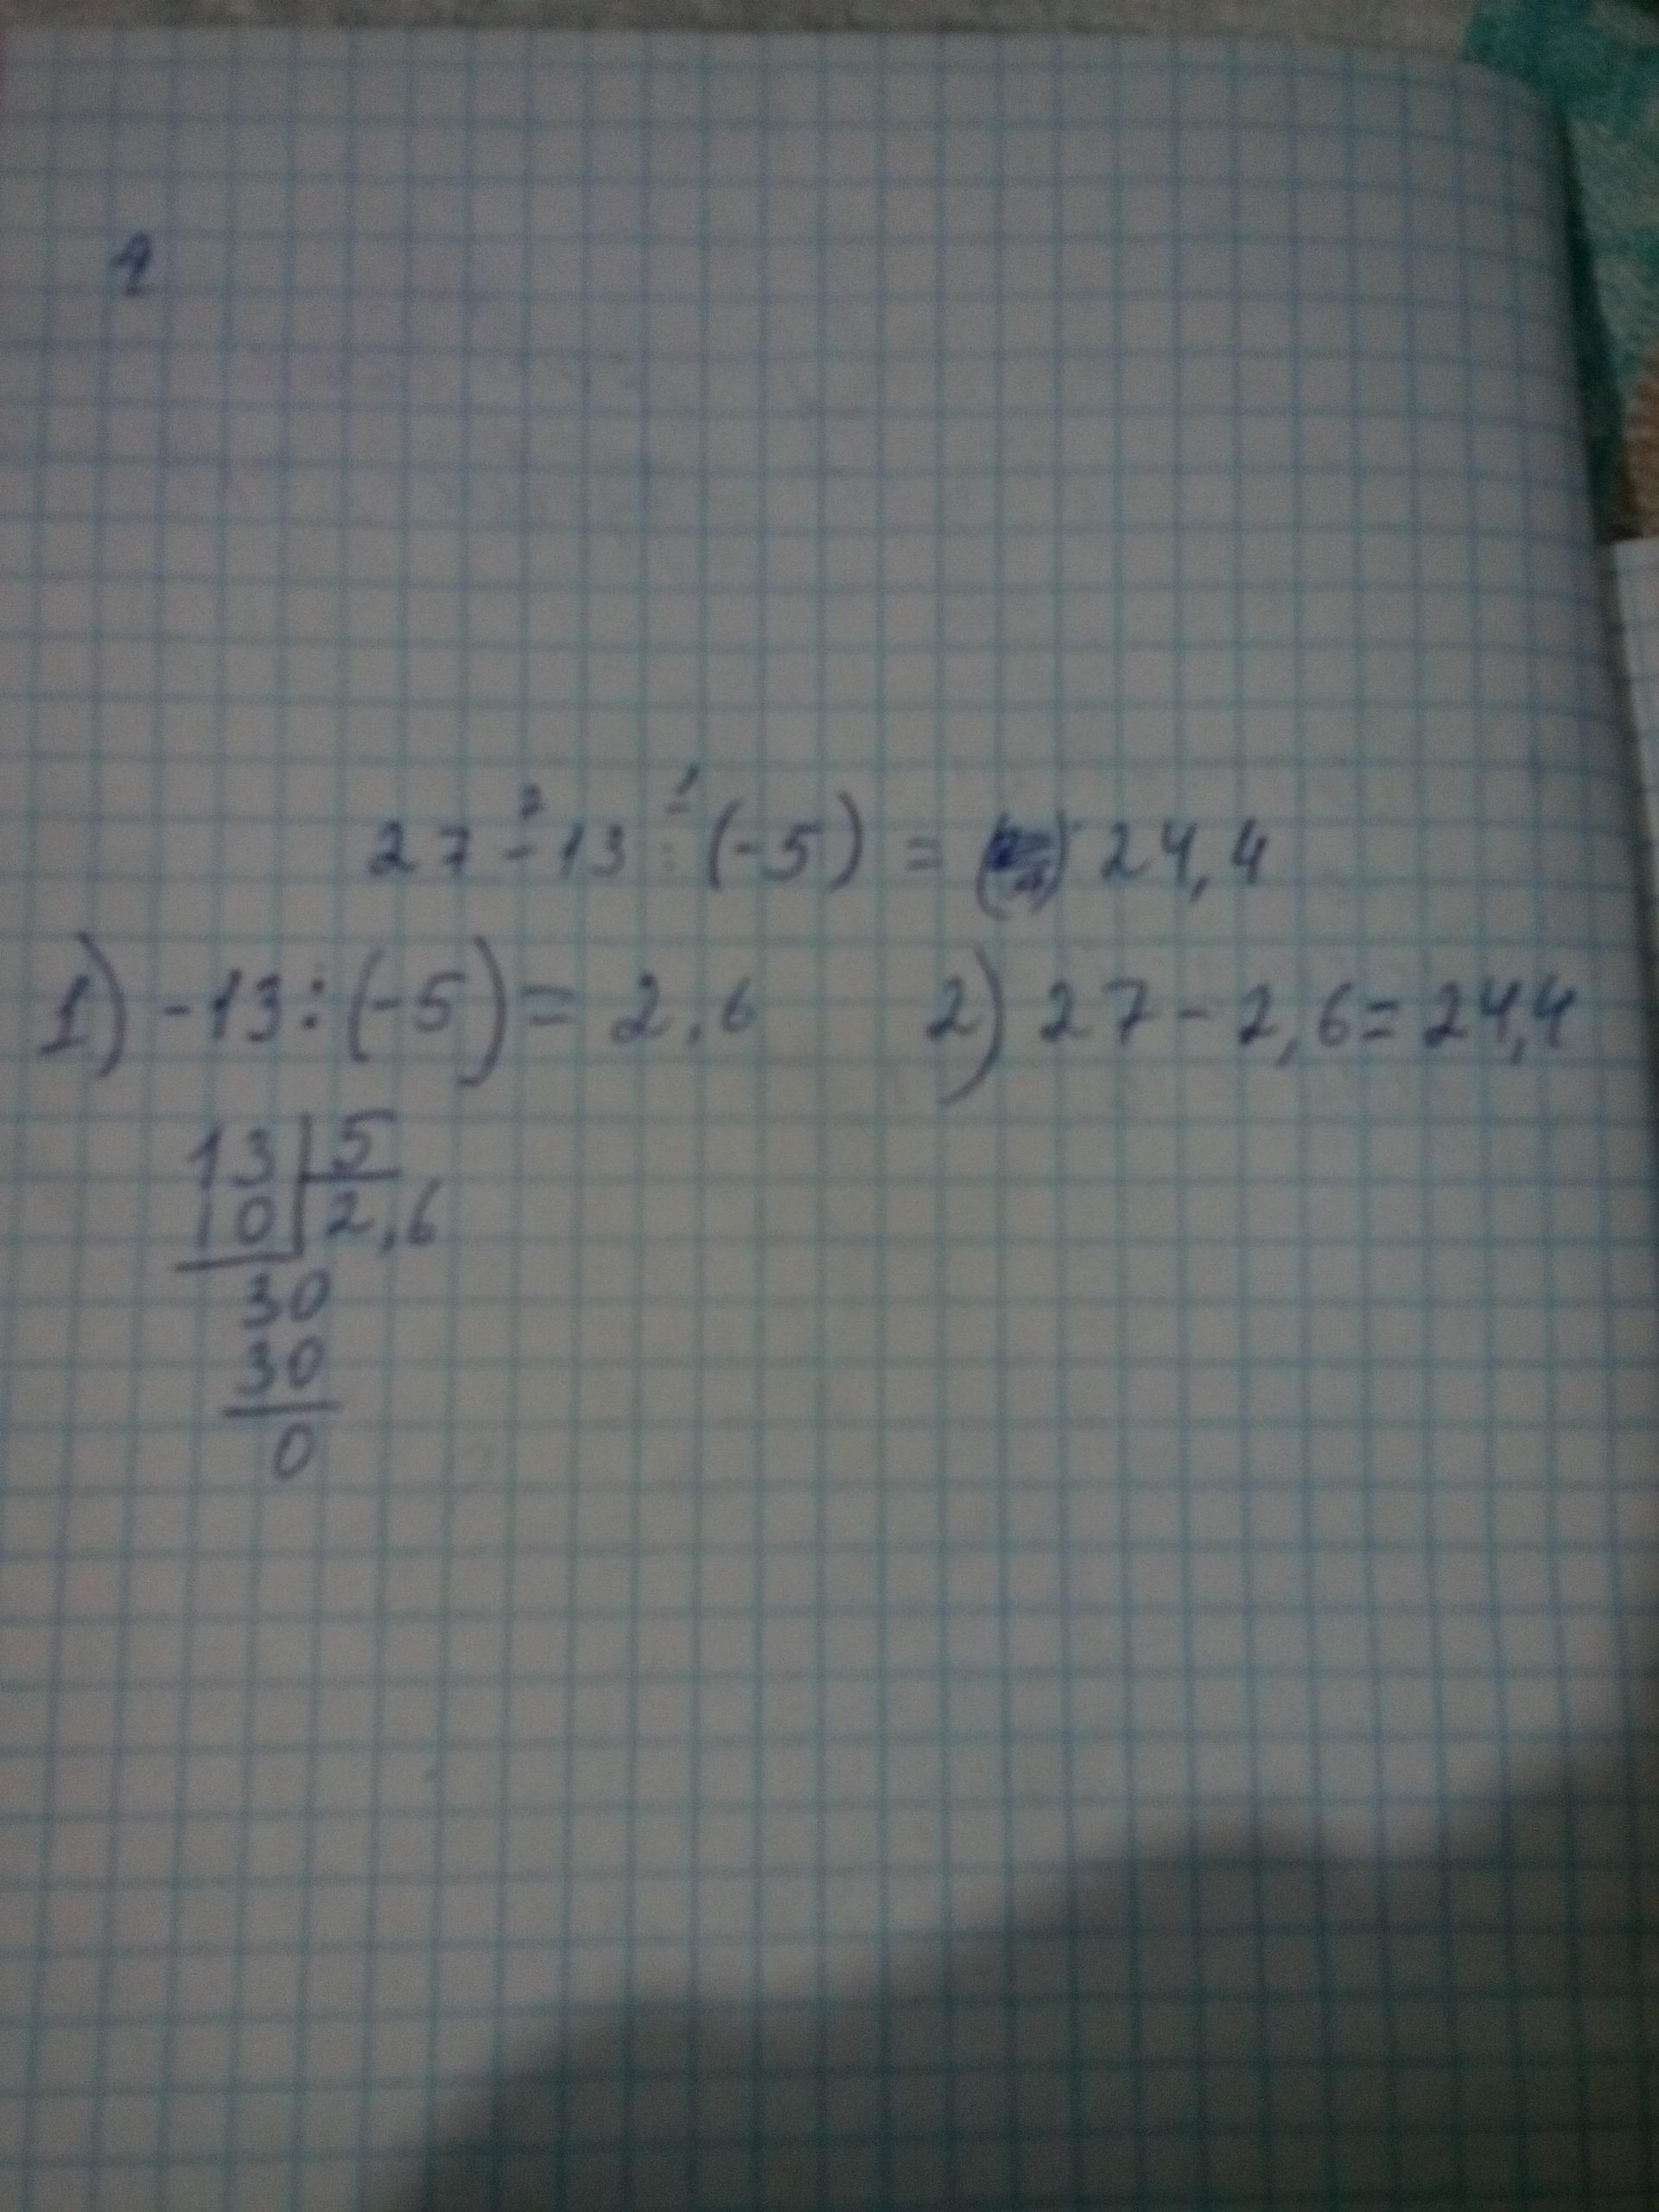 27 - 13 : (-5) = 24,4
1) -13 : (-5) = 2,6 2) 27 - 2,6 = 24,4
13 5
10 2,6
30
30
0